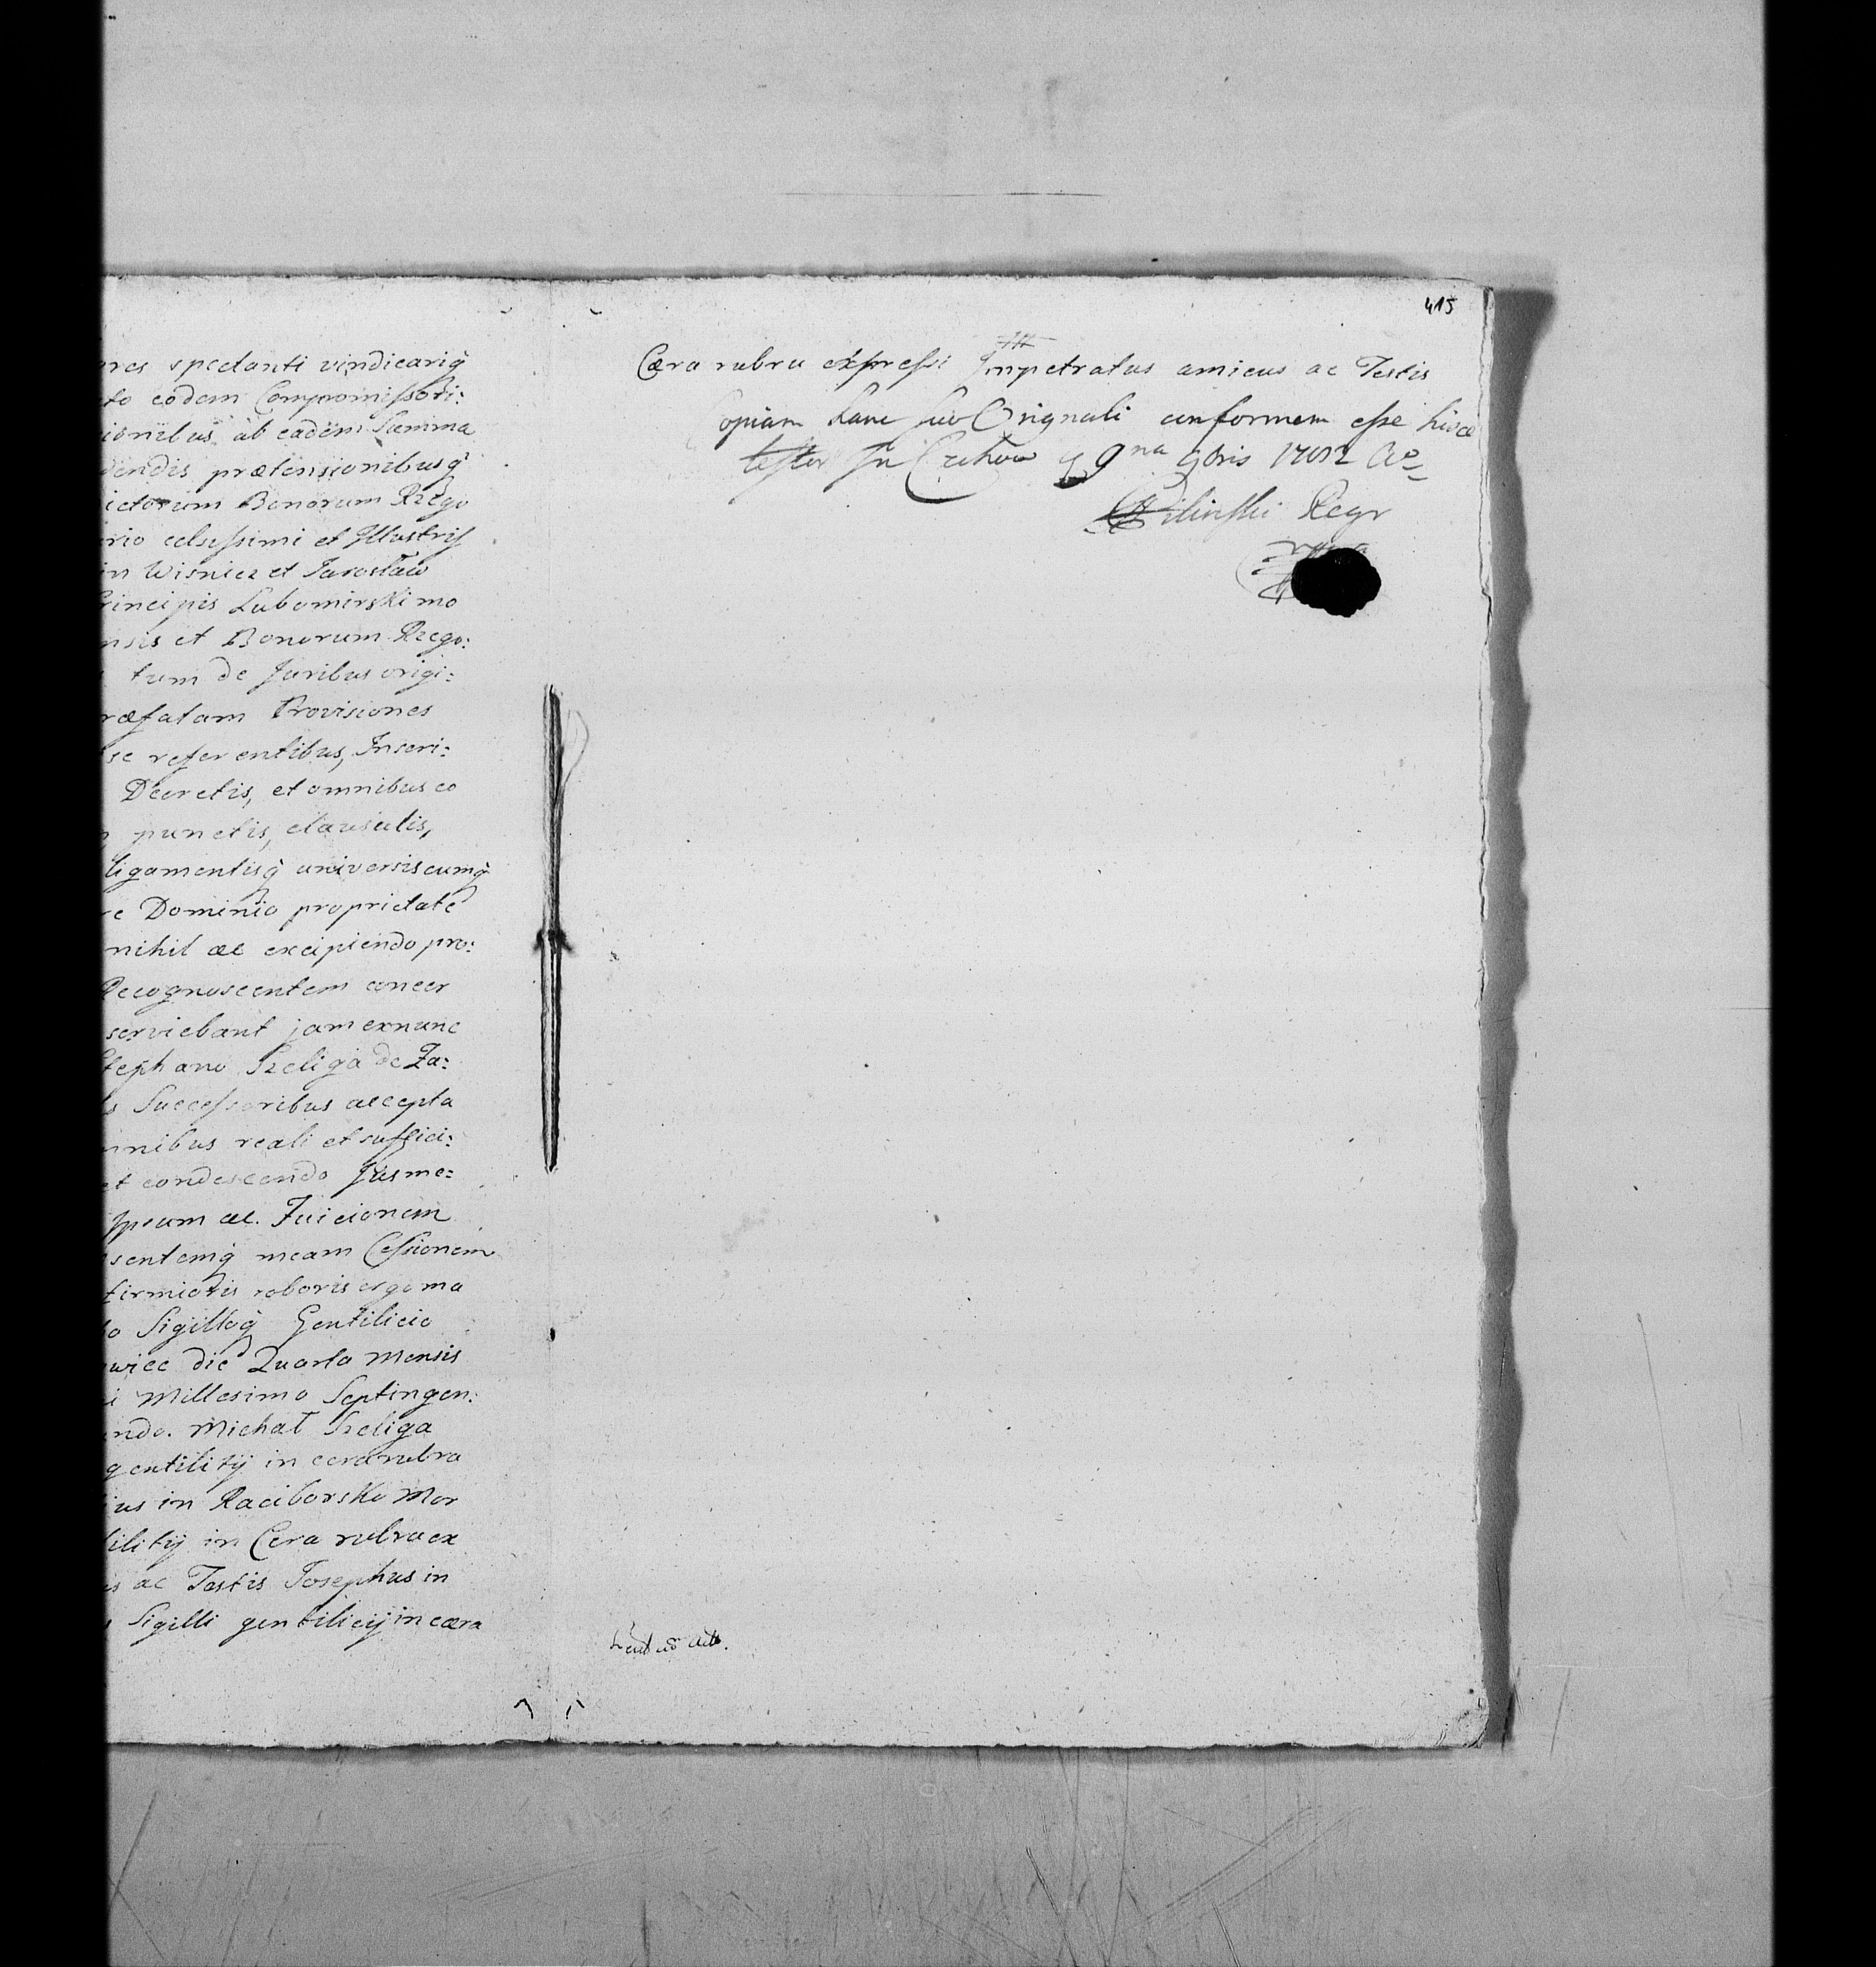 res spectanti vindicariq̀
to eodem Compromißori:
ionibus ab eadem Summa
dendis prætensionibusq̀
ictorum Bonorum Rzego
rio celsißimi et Illustriß
in Wisnicz et Jarosław
rincipis Lubomirski mo
nsis et Bonorum Rzego:
tum de Juribus origi:
ræfatam Provisiones
se referentibus, Inscri:
Decretis, et omnibus co
punctis, clausulis,
ligamentisq̀ universiscumq̀
re Dominio proprietate
nihil ac excipiendo pro:
Recognoscentem concer
serviebant jam exnunc
tephano Szeliga de Za:
s Succeßoribus accepta
mnibus reali et suffici:
et condescendo Jus me:
Ipsum ac. Juicionem
sentemq̀ meam Ceßionem
firmioris roboris ergo ma
o Sigilloq̀ Gentilicio
wiec die Quarta Mensis
i Millesimo Septingen:
ndo. Michał Szeliga
gentilitÿ in cera rubra
ius in Raciborsko Mor
ilitÿ in Cera rubra ex
s ac Testis Josephus in
Sigilli gentilicij in cæra
415
Cæra rubra expreßi Impetratus amicus ac Testis
opiam hanc suo Originali conformem eße hisce
testor In
9na 9bris
Regr